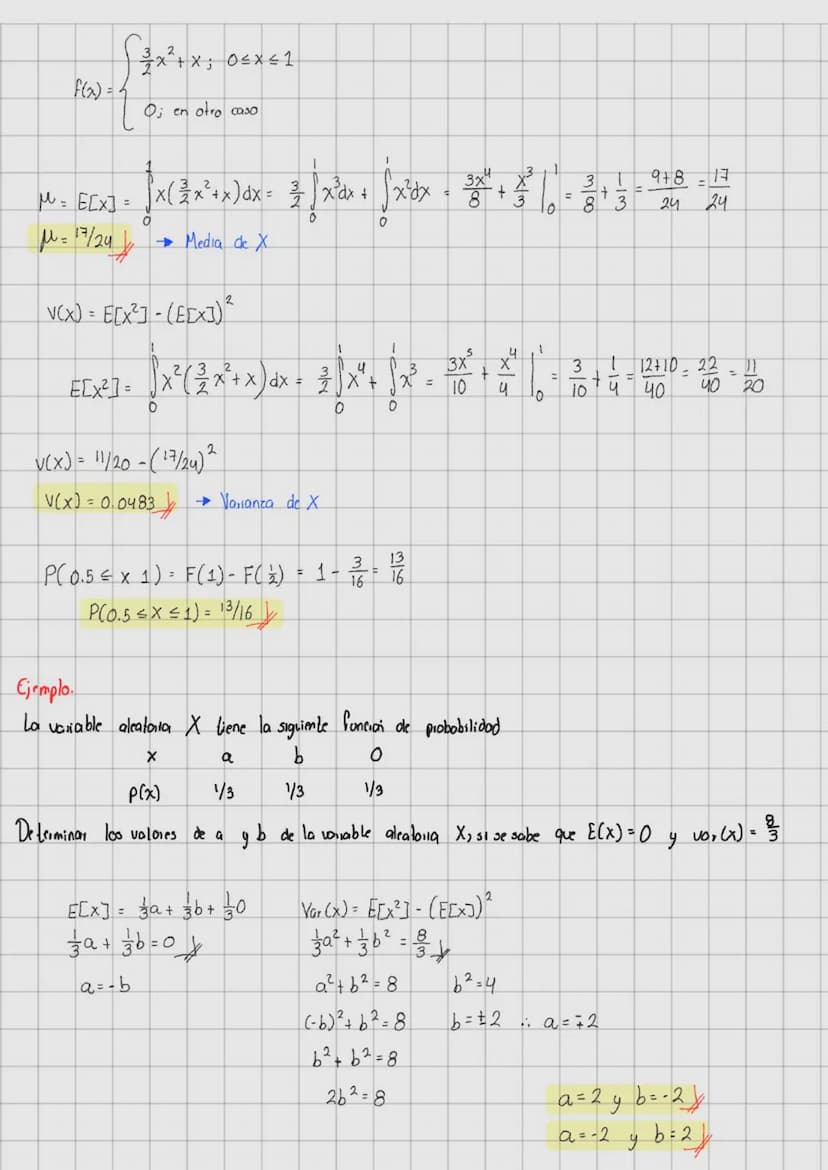 f(x) = { 3/2 x² + x ; 0 ≤ x ≤ 1
0; en otro caso
μ = E[x] = ∫₀¹ x(3/2 x² + x) dx = 3/2 ∫₀¹ x³dx + ∫₀¹ x²dx = 3x⁴/8 + x³/3 |₀¹ = 3/8 + 1/3 = 9+8/24 = 17/24
μ = 17/24 → Media de X
V(x) = E[x²] - (E[x])²
E[x²] = ∫₀¹ x²(3/2 x² + x) dx = 3/2 ∫₀¹ x⁴ + ∫₀¹ x³ = 3x⁵/10 + x⁴/4 |₀¹ = 3/10 + 1/4 = 12+10/40 = 22/40 = 11/20
V(x) = 11/20 - (17/24)²
V(x) = 0.0483 → Varianza de X
P(0.5 ≤ x 1) = F(1) - F(1/2) = 1 - 3/16 = 13/16
P(0.5 ≤ X ≤ 1) = 13/16
Ejemplo.
La variable aleatoria X tiene la siguiente función de probabilidad
x a b 0
P(x) 1/3 1/3 1/3
Determinar los valores de a y b de la variable aleatoria X, si se sabe que E(x) = 0 y var(x) = 8/3
E[x] = 1/3 a + 1/3 b + 1/3 0 Var(x) = E[x²] - (E[x])²
1/3 a + 1/3 b = 0 1/3 a² + 1/3 b² = 8/3
a = -b a² + b² = 8 b² = 4
(-b)² + b² = 8 b = ±2 ∴ a = ∓2
b² + b² = 8
2b² = 8 a = 2 y b = -2
a = -2 y b = 2